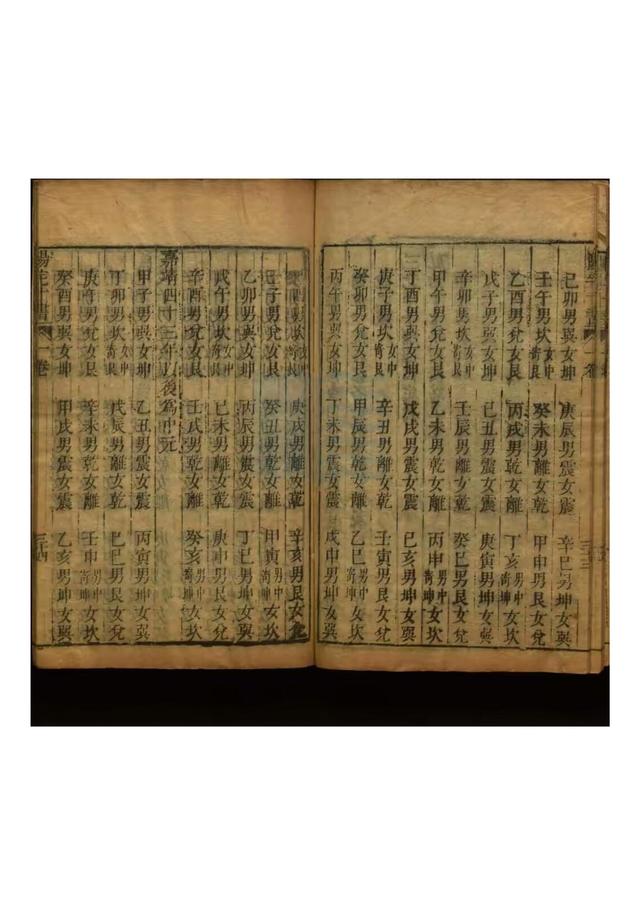 己卯男巽女坤 庚辰男震女震 辛巳男坤女巽
壬午男坎女中寄艮 癸未男離女乾 甲申男艮女兌
乙酉男兌女艮 丙戌男乾女離 丁亥男中寄坤女坎
戊子男巽女坤 己丑男震女震 庚寅男坤女巽
辛卯男坎女中寄艮 壬辰男離女乾 癸巳男艮女兌
甲午男兌女艮 乙未男乾女離 丙申男中寄坤女坎
丁酉男巽女坤 戊戌男震女震 己亥男坤女巽
庚子男坎女中寄艮 辛丑男離女乾 壬寅男艮女兌
癸卯男兌女艮 甲辰男乾女離 乙巳男中寄坤女坎
丙午男巽女坤 丁未男震女震 戊申男坤女巽
男坎女中寄艮 庚戌男離女乾 辛亥男艮女兌
壬子男兌女艮 癸丑男乾女離 甲寅男中寄坤女坎
乙卯男巽女坤 丙辰男震女震 丁巳男坤女巽
戊午男坎女中寄艮 己未男離女乾 庚申男艮女兌
辛酉男兌女艮 壬戌男乾女離 癸亥男中寄坤女坎
嘉靖四十三年以後為中元
甲子男巽女坤 乙丑男震女震 丙寅男坤女巽
丁卯男坎女中寄艮 戊辰男離女乾 己巳男艮女兌
庚午男兌女艮 辛未男乾女離 壬申男中寄坤女坎
癸酉男巽女坤 甲戌男震女震 乙亥男坤女巽
陽宅十書 一卷 三十四